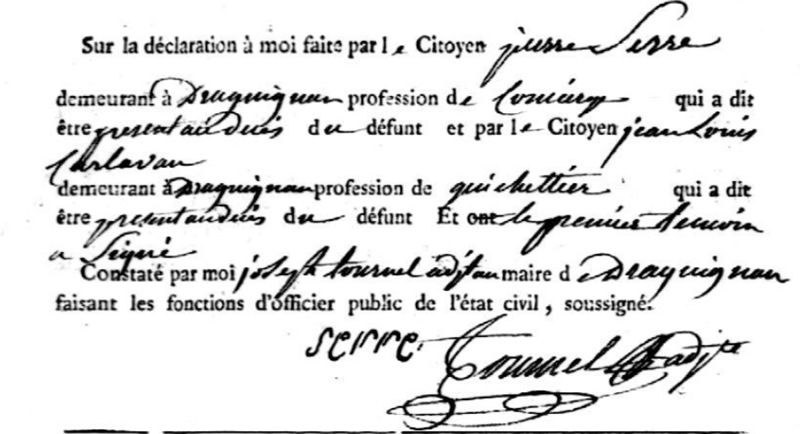 Sur la déclaration à moi faite par le Citoyen pierre Serre
demeurant à Draguignan profession de Concierge qui a dit
être present au deces du défunt et par le Citoyen jean Louis
Carlavan
demeurant à Draguignan profession de guichettier qui a dit
être present au deces du défunt Et ont le premier temoin
a Signé
Constaté par moi joseph tournel adjt au maire de Draguignan
faisant les fonctions d'officier public de l'état civil, soussigné.
serre. Tournel adjt